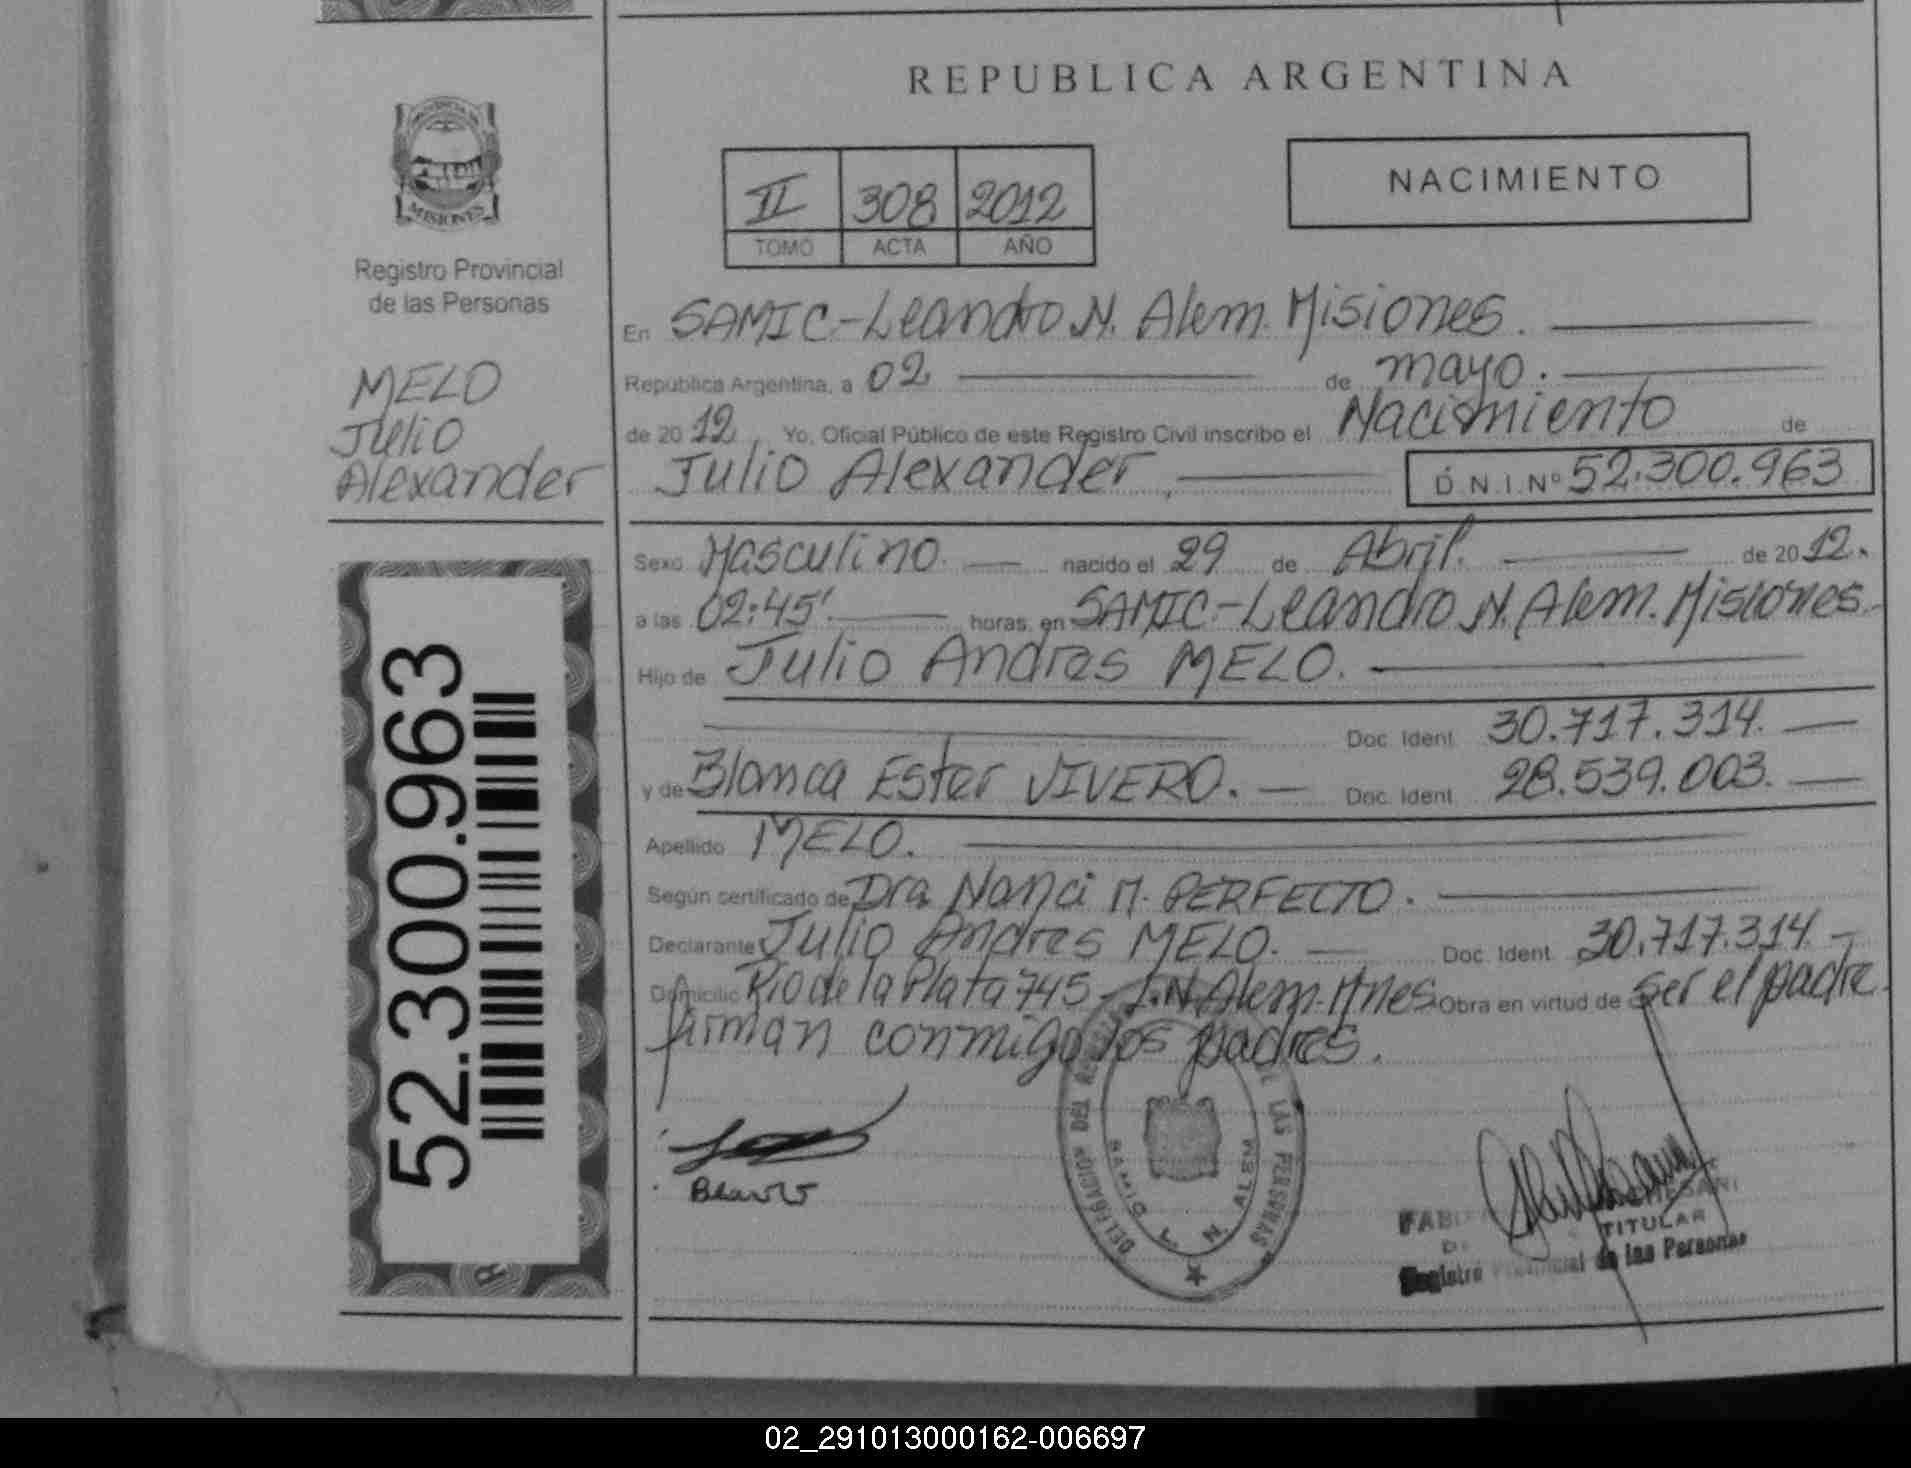 REPUBLICA ARGENTINA
PROVINCIA DE
MISIONES
Registro Provincial
de las Personas
II 308 2012
TOMO ACTA AÑO
NACIMIENTO
MELO
Julio
Alexander
En SAMIC-Leandro N. Alem. Misiones.
República Argentina, a 02 de mayo.
de 20 12, Yo, Oficial Público de este Registro Civil inscribo el Nacismiento de
Julio Alexander, D.N.I. Nº 52.300.963
Sexo Masculino. nacido el 29 de Abril. de 20 12.
a las 02:45' horas, en SAMIC-Leandro N. Alem. Misiones.
Hijo de Julio Andres MELO.
Doc. Ident. 30.717.314.
y de Blanca Ester VIVERO. Doc. Ident. 28.539.003.
Apellido MELO.
Según certificado de Dra Nanci M. PERFECTO.
Declarante Julio Andres MELO. Doc. Ident. 30.717.314
Domicilio Rio de la Plata 745 - L.N. Alem. Mnes Obra en virtud de ser el padre.
firman conmigo los padres.
52.300.963
DELEGACION DEL DE LAS PERSONAS
SAMIC L. N. ALEM
TITULAR
Registro Provincial de las Personas
02_291013000162-006697